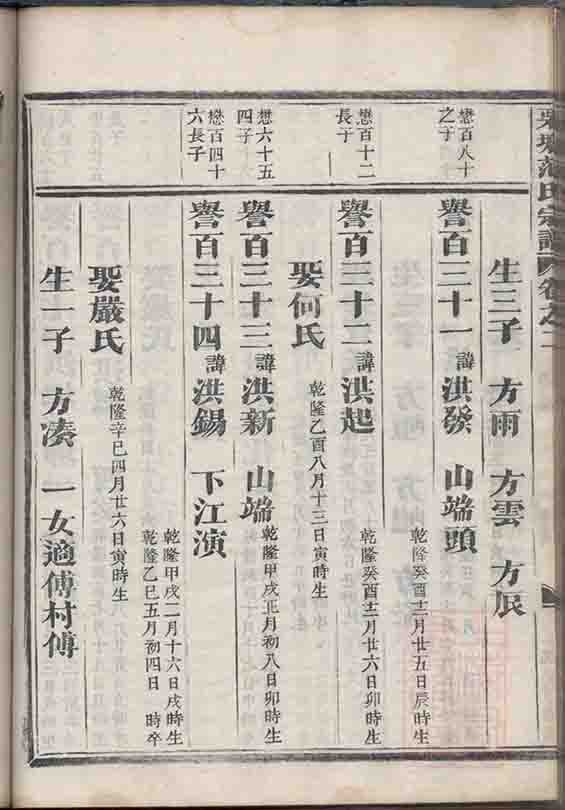 范氏宗譜 卷之二
生三子 方雨 方雲 方辰
懋百八十之子
譽百三十一 諱洪發 山端頭 乾隆癸酉十二月廿五日辰時生
懋百十二長子
譽百三十二 諱洪起 乾隆癸酉十二月廿六日卯時生
娶何氏 乾隆乙酉八月十三日寅時生
懋六十五四子
譽百三十三 諱洪新 山端 乾隆甲戌正月初八日卯時生
懋百四十六長子
譽百三十四 諱洪錫 下江演 乾隆甲戌二月十六日戌時生
乾隆乙巳五月初四日 時卒
娶嚴氏 乾隆辛巳四月廿六日寅時生
生一子 方湊 一女適傅村傅